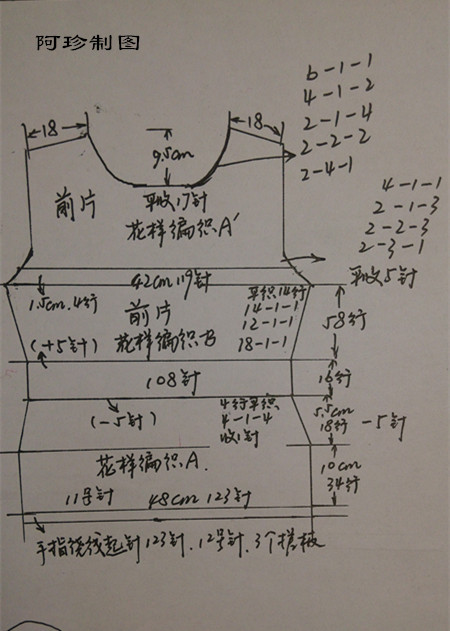 阿珍制图
6-1-1
4-1-2
2-1-4
2-2-2
2-4-1
18
9.5cm
18
前片
平收17针
花样编织A'
4-1-1
2-1-3
2-2-3
2-3-1
平收5针
42cm 119针
1.5cm.4行
前片
平织14行
14-1-1
12-1-1
18-1-1
58行
(+5针)
花样编织B
108针
16行
(-5针)
4行平织
4-1-4
收1针
5.5cm
18行
-5针
花样编织A.
10cm
34行
11号针
48cm 123针
手指绕线起针123针.12号针.3个搓板